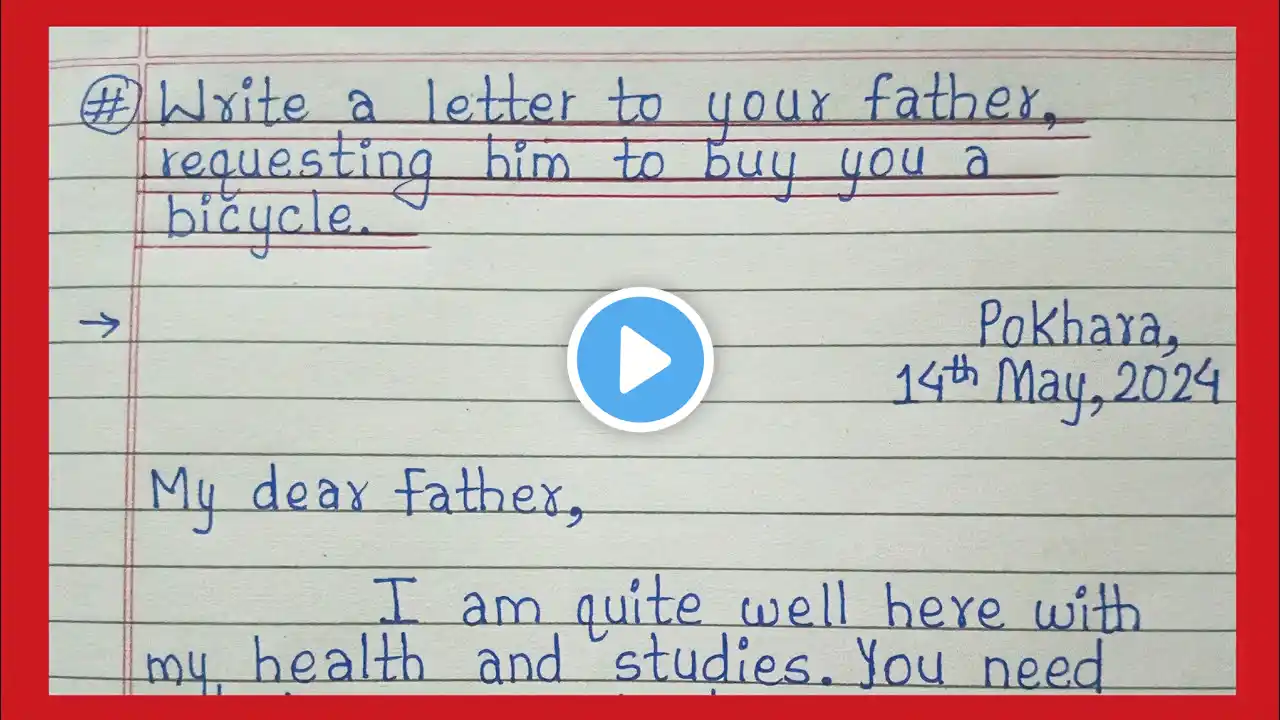 # Write a letter to your father,
requesting him to buy you a
bicycle.
→ Pokhara,
14th May, 2024
My dear father,
I am quite well here with
my health and studies. You need